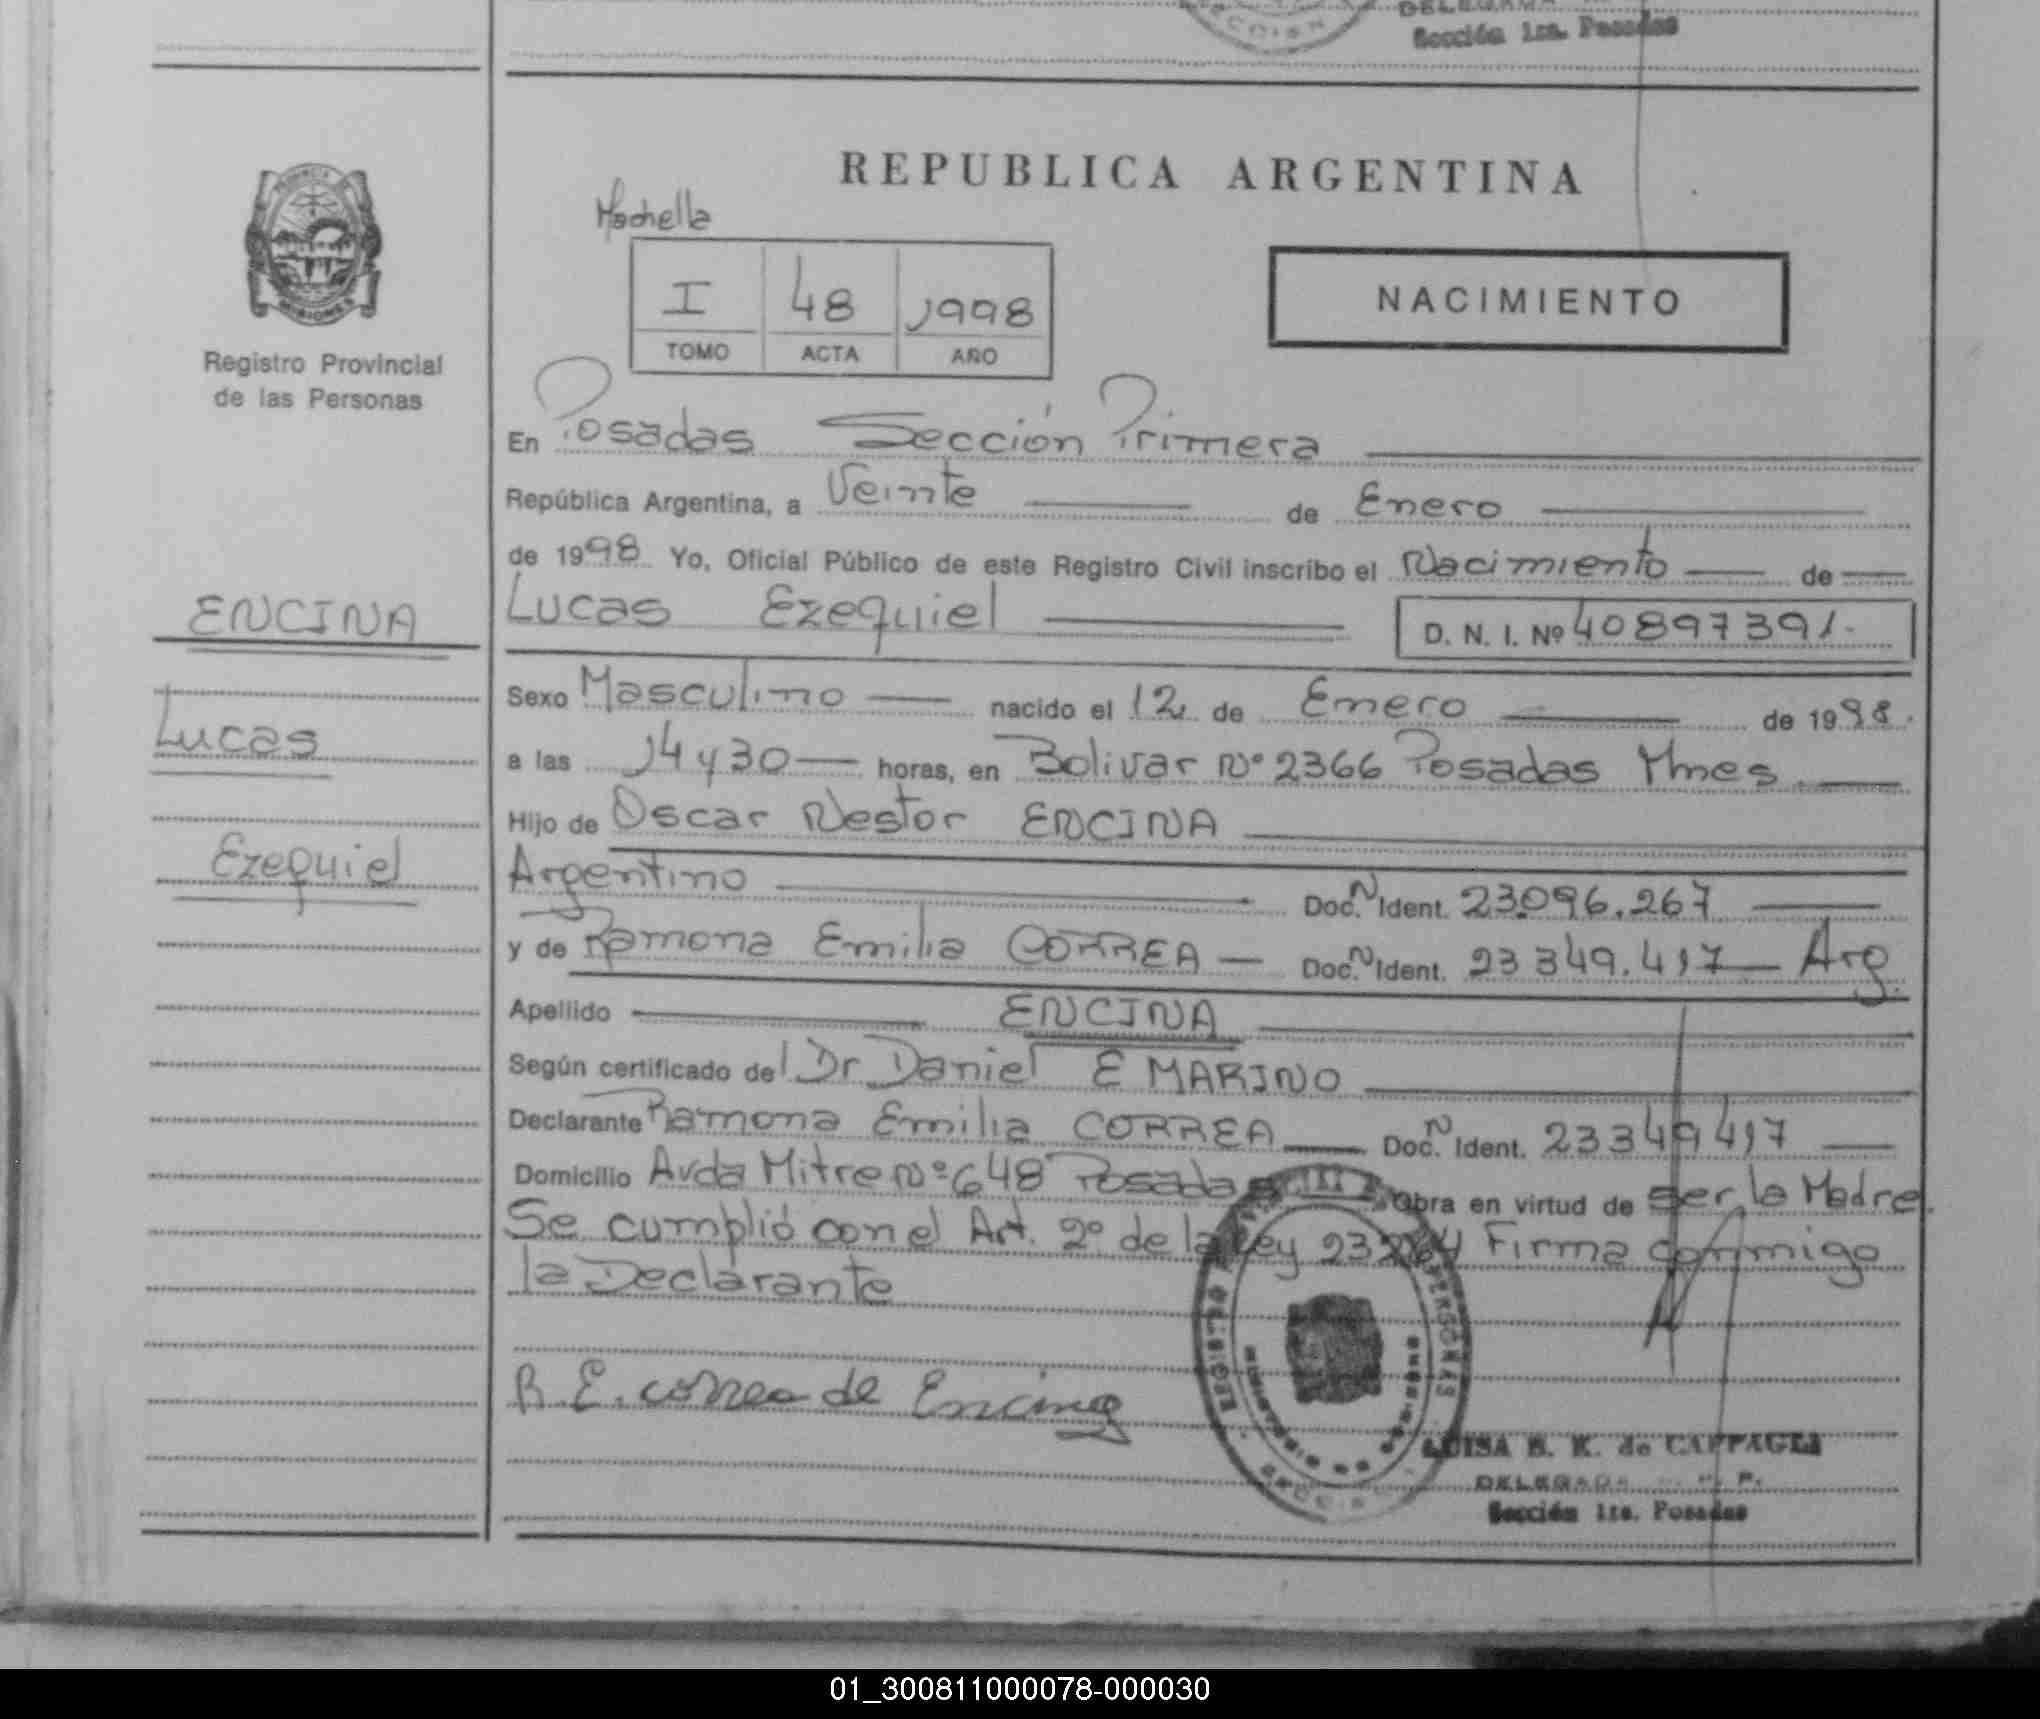 DELEGADA
Sección 1ra. Posadas
REPUBLICA ARGENTINA
Machella
I 48 1998
TOMO ACTA AÑO
NACIMIENTO
PROVINCIA DE
MISIONES
Registro Provincial
de las Personas
En Posadas Sección Primera
República Argentina, a Veinte de Enero
de 1998 Yo, Oficial Público de este Registro Civil inscribo el Nacimiento de
ENCINA
Lucas Ezequiel D. N. I. Nº 40897391.
Sexo Masculino nacido el 12 de Enero de 1998.
Lucas
a las 14 y 30 horas, en Bolivar Nº 2366 Posadas Mnes.
Hijo de Oscar Nestor ENCINA
Ezequiel
Argentino Doc. N Ident. 23.096.267
y de Ramona Emilia CORREA Doc. N Ident. 23349.417 Arg.
Apellido ENCINA
Según certificado del Dr Daniel E MARINO
Declarante Ramona Emilia CORREA Doc. N Ident. 23349417
Domicilio Avda Mitre Nº 648 Posadas Obra en virtud de ser la Madre.
Se cumplió con el Art. 2º de la Ley 23264 Firma conmigo
la Declarante
R. E. correa de Encina
PERSONAS
LUISA B. K. de CAPPAGLI
DELEGADA R. P.
Sección 1ra. Posadas
01_300811000078-000030